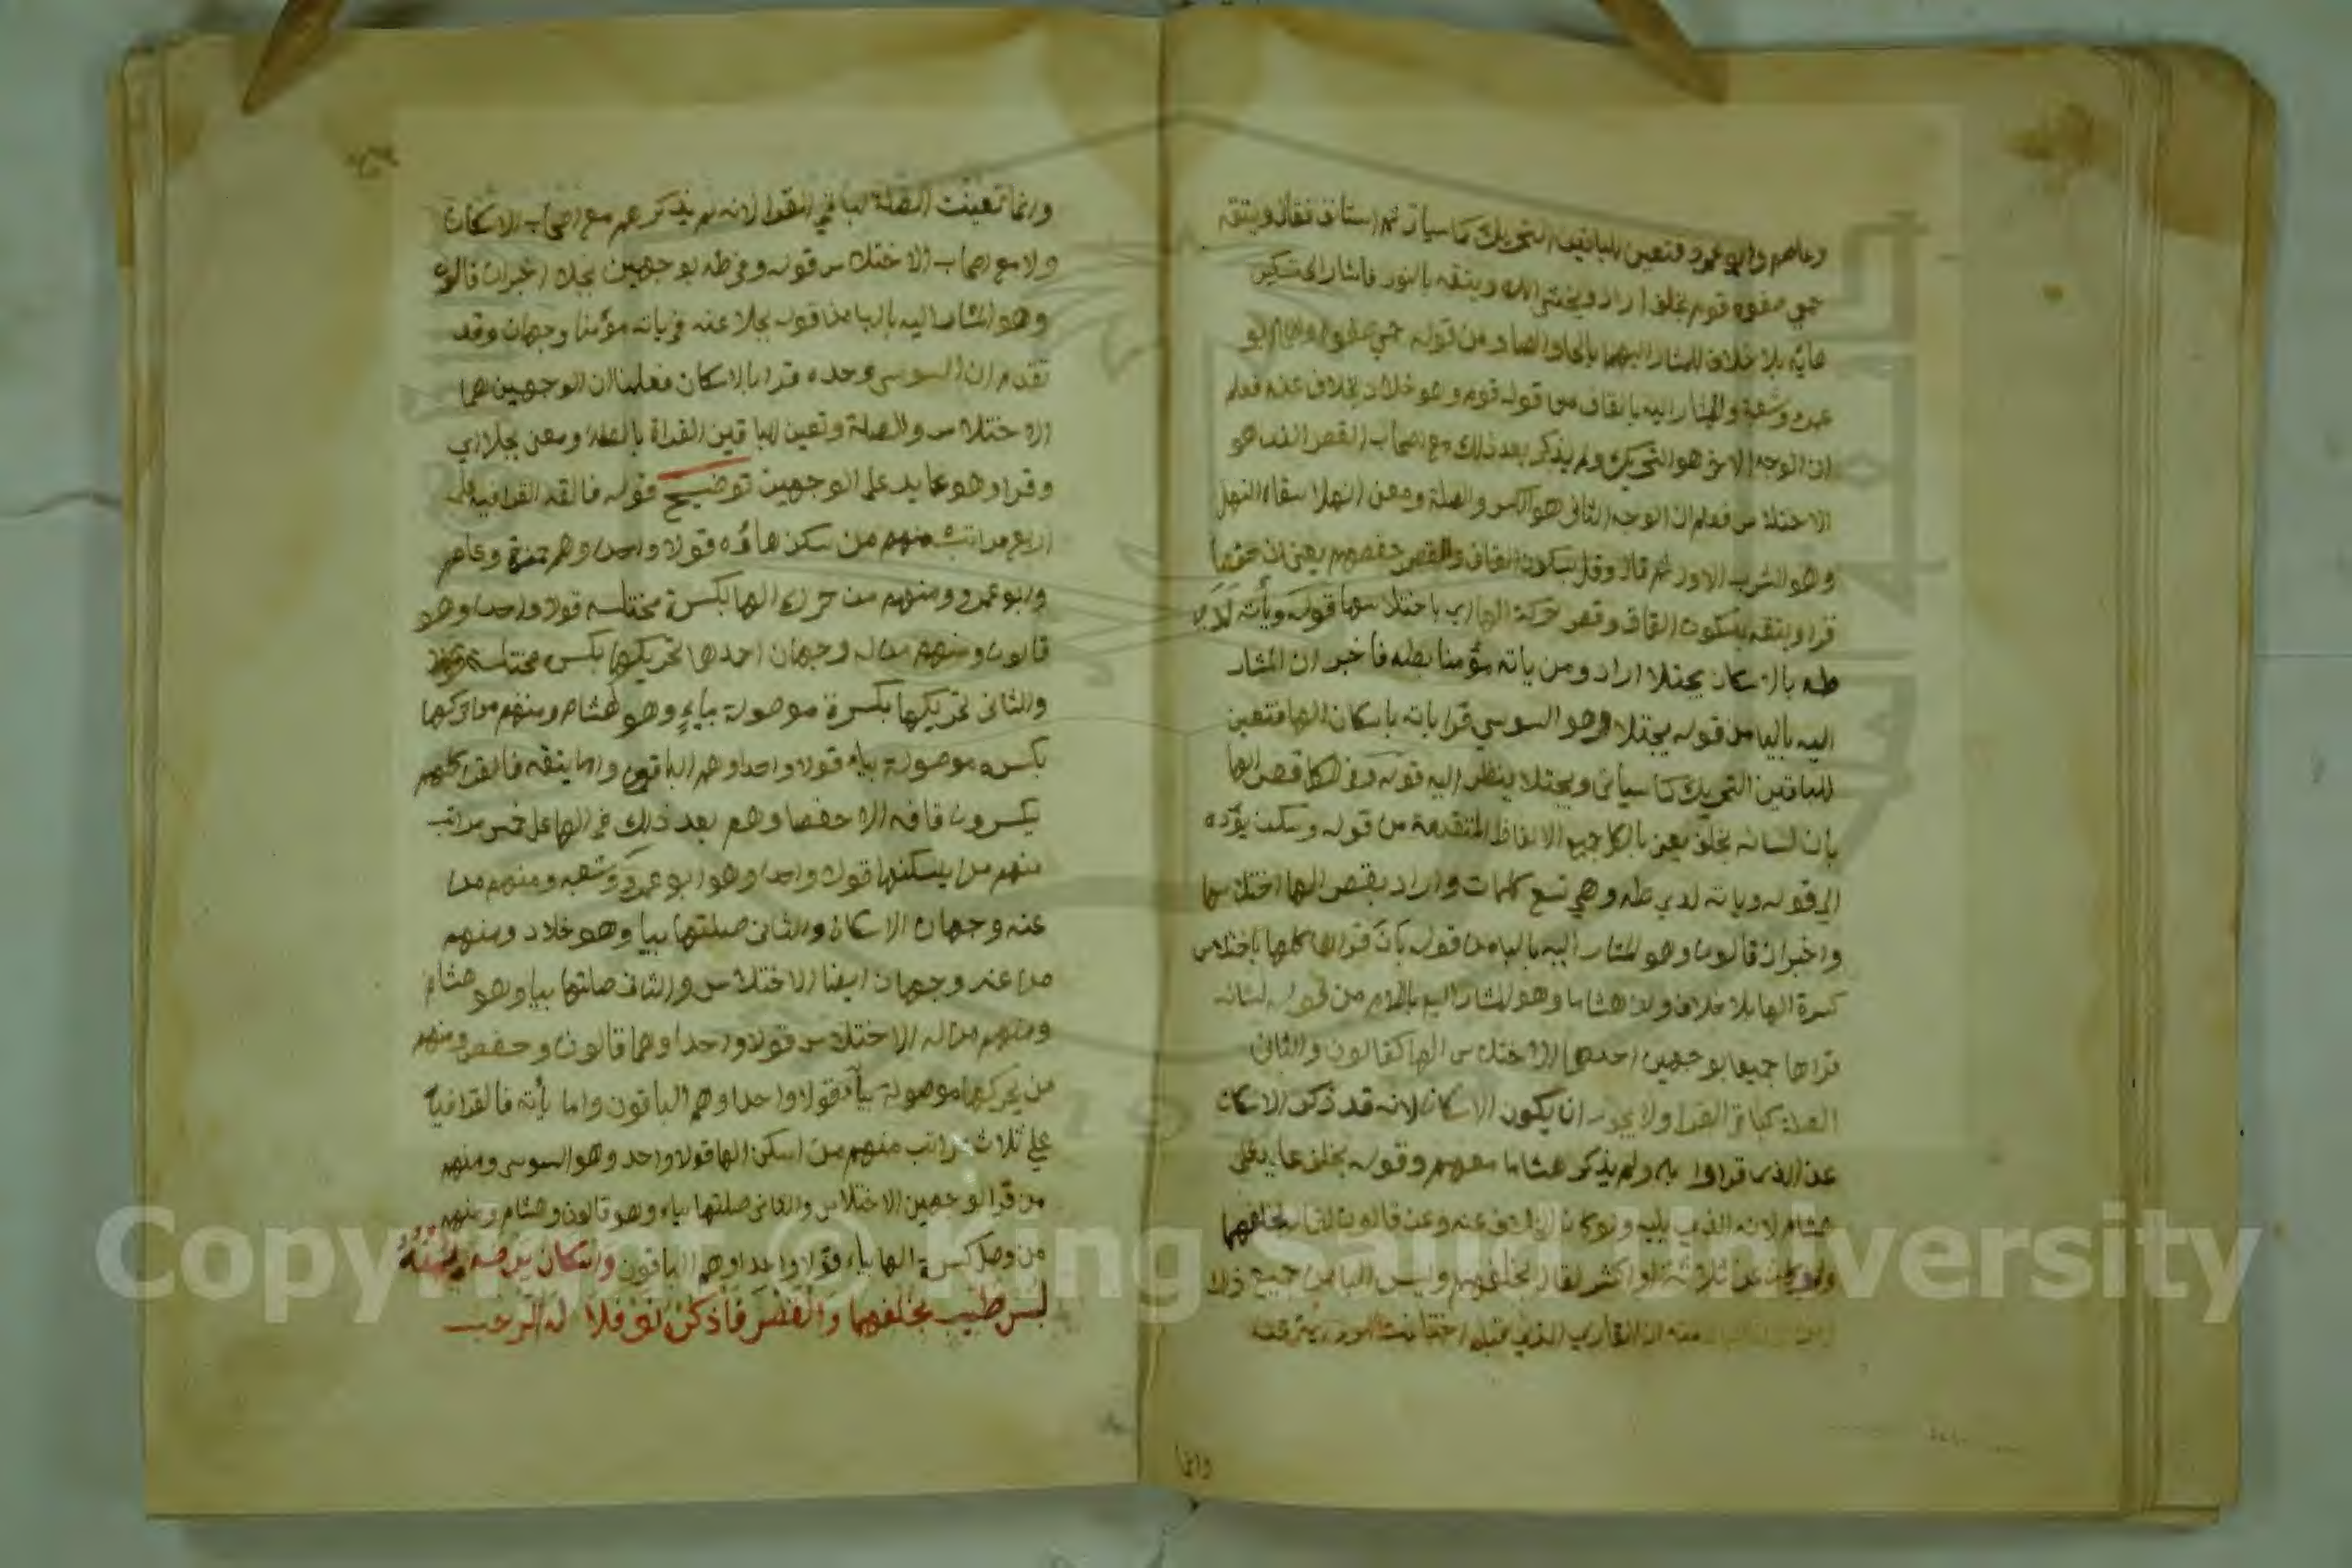 وعاصم وابو عمرو فتعين للباقين التحريك كما سياتى ثم استانف فقال ويتقه
حمى صفوه قوم بخلف اراد ويخشى الله ويتقه بالنور فاشار الى تسكين
هائه بلا خلاف للمشار اليهما بالحا والصاد من قوله حمى صفوه وهما ابو
عمرو وشعبة والمشار اليه بالقاف من قوله قوم وهو خلاد بخلاف عنه فعلم
ان الوجه الاخر هو التحريك ولم يذكره بعد ذلك مع اصحاب القصر الذى هو
الاختلاس فعلم ان الوجه الثانى هو الكسر والصلة ومعنى انهلا سقاه النهل
وهو الشرب الاول ثم قال وقل بسكون القاف والقصر حفصهم يعنى ان حفصا
قرا ويتقه بسكون القاف وقصر حركة الها اي باختلاسها قوله ويأته لدى
طه بالاسكان يجتلا اراد ومن ياته مؤمنا بطه فاخبر ان المشار
اليه باليا من قوله يجتلا وهو السوسي قرا ياته باسكان الها فتعين
للباقين التحريك كما سياتى ويجتلا ينظر اليه قوله وفى الكل قصر الها
بان لسانه بخلف يعنى بالكل جميع الالفاظ المتقدمة من قوله وسكن يؤده
الى قوله وياته لدى طه وهي تسع كلمات واراد بقصر الها اختلاسها
واخبر ان قالون وهو المشار اليه بالباء من قوله بأن قراها كلها باختلاس
كسرة الها بلا خلاف وان هشاما وهو المشار اليه باللام من قوله لسانه
قراها جميعا بوجهين احدهما الاختلاس الها كقالون والثانى
الصلة كباقى القرا ولا يجوز ان يكون الاسكان لانه قد ذكر الاسكان
عن الذين قراوا به ولم يذكر هشاما معهم وقوله بخلف عايد على
هشام لانه الذى يليه ولو كان الخلاف عنه وعن قالون لقال بخلفهما
ولو كان عن ثلاثة او اكثر لقال بخلفهم وليس الباء من جميع ذلك
وانما
وانما تعينت الصلة لباقى القرا لانه لم يذكرهم مع اصحاب الاسكان
ولا مع اصحاب الاختلاس قوله وفى طه بوجهين بجلا اخبر ان قالون
وهو المشار اليه بالبا من قوله بجلا عنه فى ياته مؤمنا وجهان وقد
تقدم ان السوسى وحده قرا بالاسكان فعلمنا ان الوجهين هما
الاختلاس والصلة وتعين للباقين القراة بالصلة ومعنى بجلا اي
وقر وهو عايد على الوجهين توضيح قوله فالقه القرا فيه على
اربع مراتب منهم من سكن هاؤه قولا واحدا وهم حمزة وعاصم
وابو عمرو ومنهم من حرك الها بكسرة مختلسة قولا واحدا وهو
قالون ومنهم من له وجهان احدهما تحريكها بكسرة مختلسة
والثانى تحريكها بكسرة موصولة بياءٍ وهو هشام ومنهم من حركها
بكسره موصولة بياء قولا واحدا وهم الباقون واما يتقه فالقرا كلهم
يكسرون قافه الا حفصا وهم بعد ذلك فى الها على خمس مراتب
منهم من يسكنها قولا واحدا وهو ابو عمرو وشعبه ومنهم من
عنه وجهان الاسكان والثانى صلتها بيا وهو خلاد ومنهم
من عنه وجهان ايضا الاختلاس والثانى صلتها بيا وهو هشام
ومنهم من له الاختلاس قولا واحدا وهما قالون وحفص ومنهم
من يحركها موصولة بياء قولا واحدا وهم الباقون واما يأته فالقرا فيه
على ثلاث مراتب منهم من اسكن الها قولا واحد وهو السوسى ومنهم
من قرا بوجهين الاختلاس والثانى صلتها بياء وهو قالون وهشام ومنهم
من وصل كسرة الها بياء قولا واحدا وهم الباقون واسكان يرضه يمنه
لبس طيب بخلفهما والقصر فاذكره نوفلا له الرحب
Copyright © King Saud University